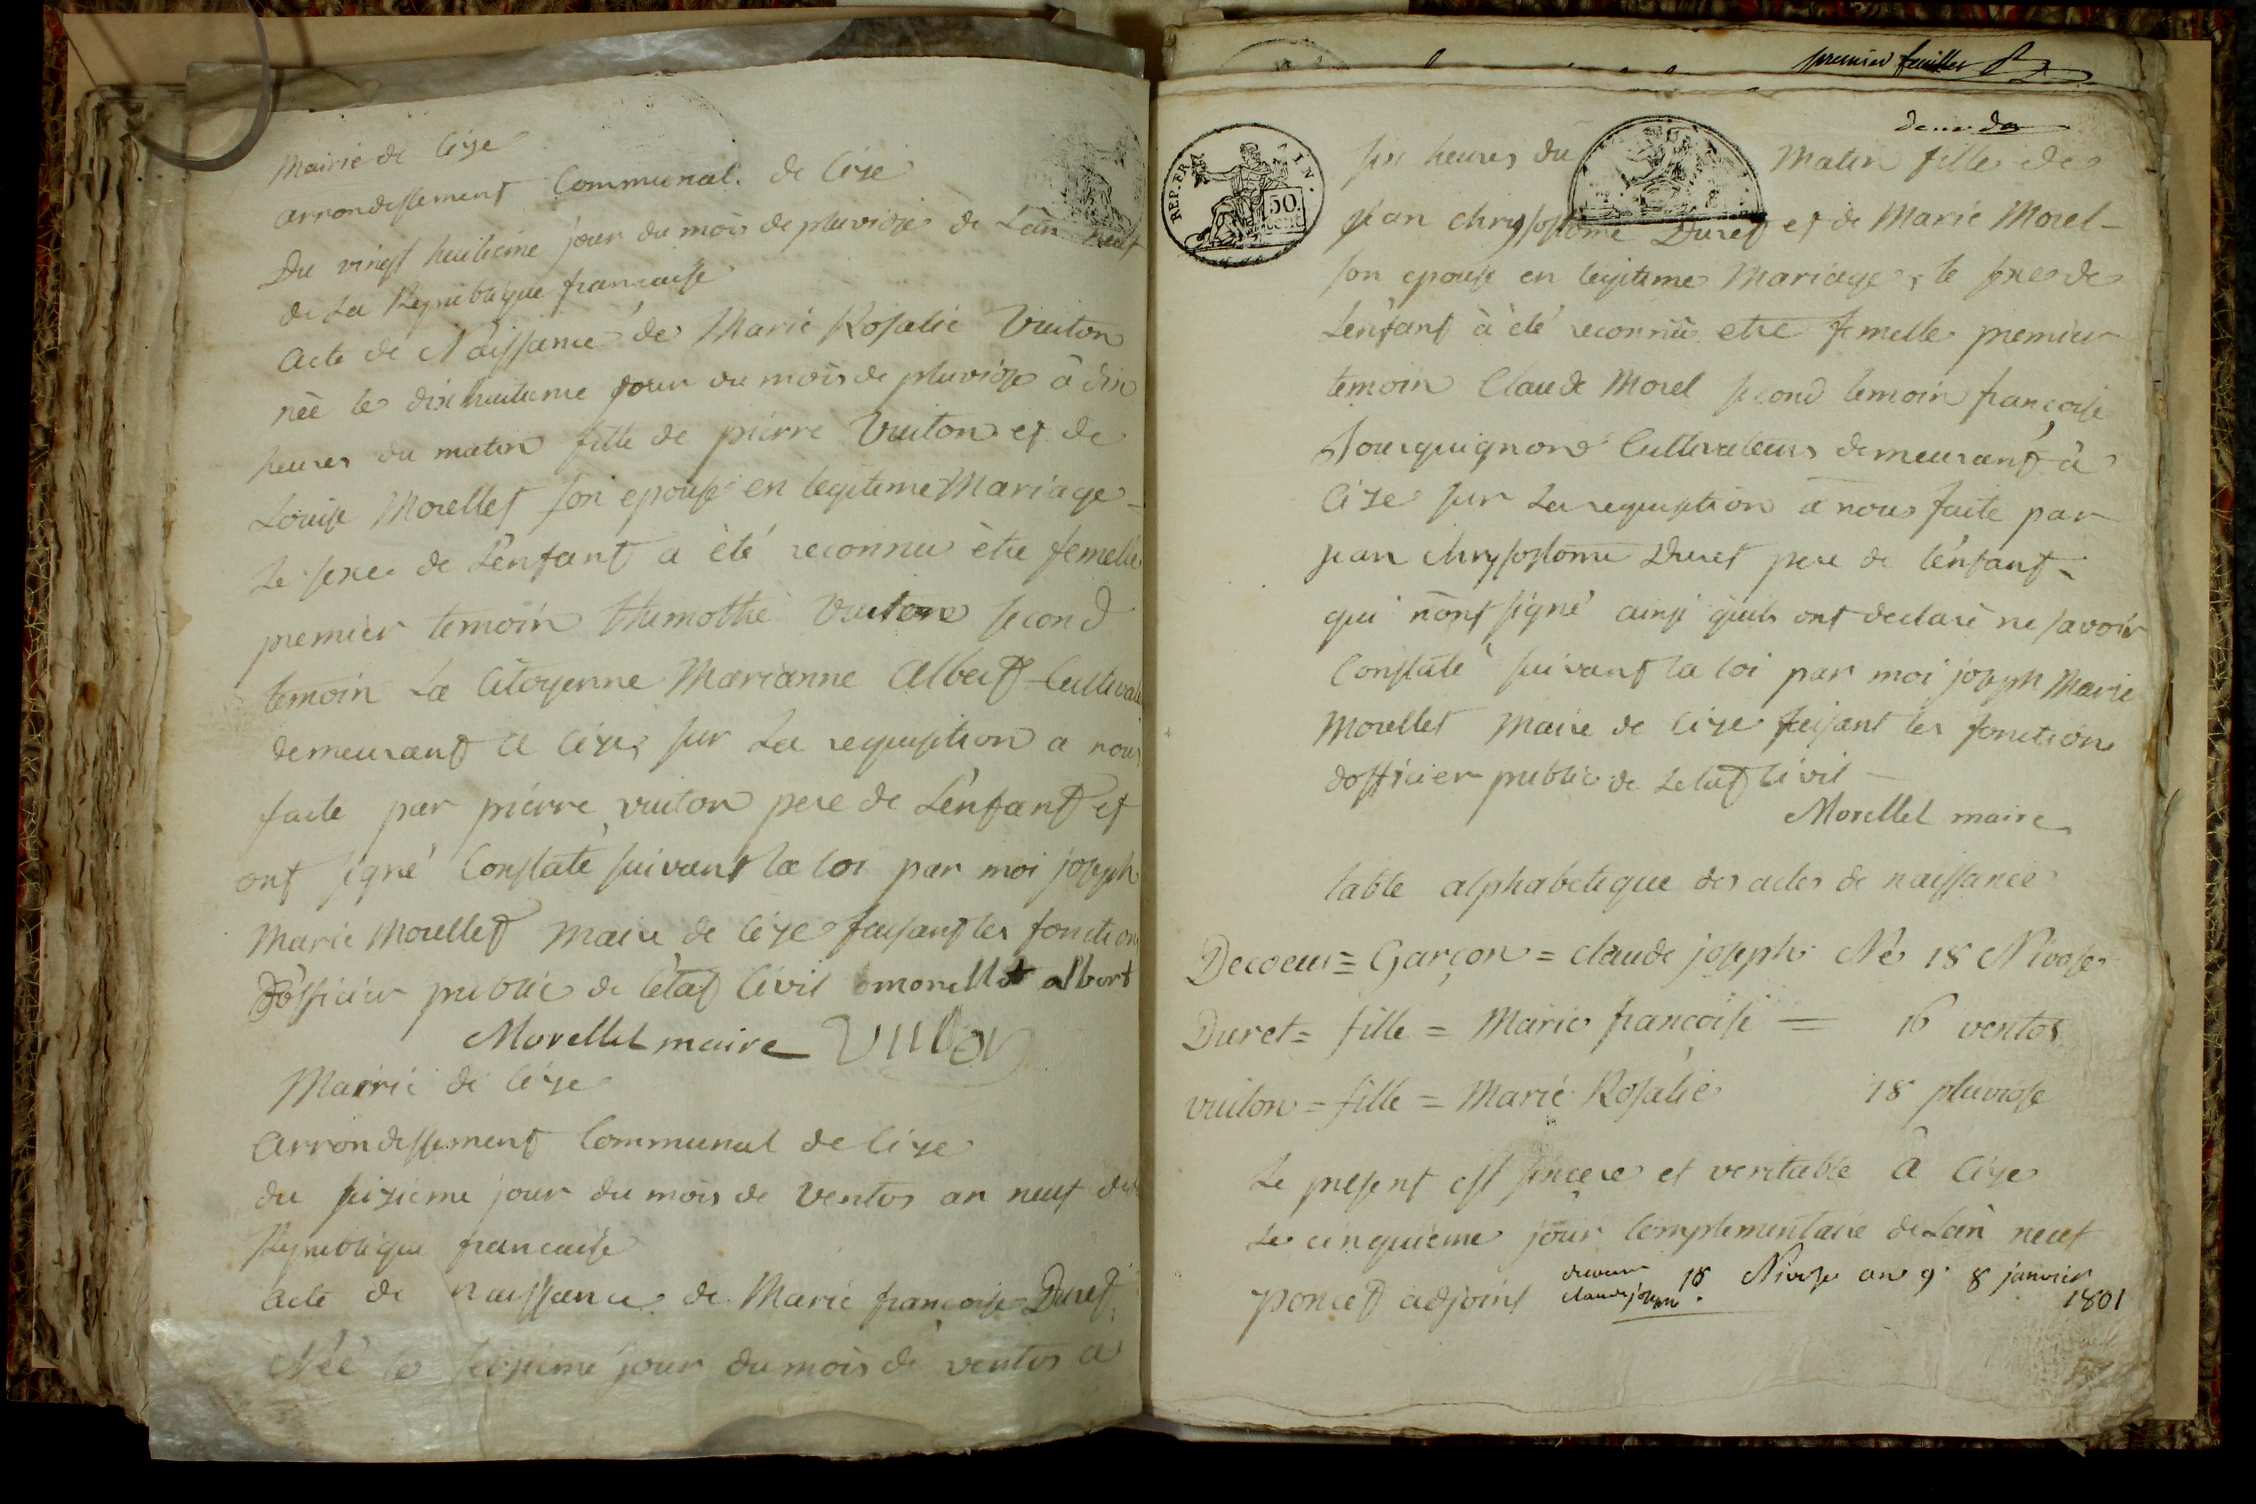 Mairie de Cize
arrondissement Communal de Cize
Du vingt huitieme jour du mois de pluviose de L'an neuf
de La Republique francaise
acte de Naissance de Marie Rosalie Vuiton
née le dix huitieme jour du mois de pluviose à dix
heures du matin fille de pierre Vuiton et de
Louise Morellet son epouse en legitime Mariage
Le sexe de L'enfant a été reconnu être femelle
premier temoin thimothé Vuiton second
temoin La Citoyenne Marianne Albert Cultivat
demeurant a Cize, sur La requisition a nous
faite par pierre vuiton pere de L'enfant et
ont signé Constaté suivant la loi par moi joseph
Marie Morellet Maire de Cize faisant les fonction
D'officier public de l'état Civil morellet albert
Morellet maire Vuiton
Mairie de Cize
arrondissement Communal de Cize
du seizieme jour du mois de Ventos an neuf de
Republique francaise
acte de naissance de Marie françoise Duret
Née le seizieme jour du mois de ventos a
premier feuillet
six heures du Matin fille de
REP. FRA.
50.
jean chrysostome Duret et de Marie Morel
son epouse en legitime Mariage, le sexe de
L'enfant à été reconnu etre femelle premier
temoin Claude Morel second temoin françoise
Bourguignon Cultivateurs demeurant à
Cize sur La requisition a nous faite par
jean chrysostome Duret pere de l'enfant
qui n'ont signé ainsi qu'ils ont declaré ne savoir
Constaté suivant la loi par moi joseph Marie
Morellet Maire de Cize faisant les fonction
d'officier public de Letat Civil
Morellet maire
table alphabetique des actes de naissance
Decoeur = Garçon = claude joseph Né 18 Nivose
Duret = fille = Marie francoise = 16 ventos
vuiton = fille = Marie Rosalie 18 pluviose
Le present est sincere et veritable a Cize
Le cinquieme jour Complementaire de Lan neuf
poncet adjoint
claude joseph 18 Nivose an 9. 8 janvier
1801